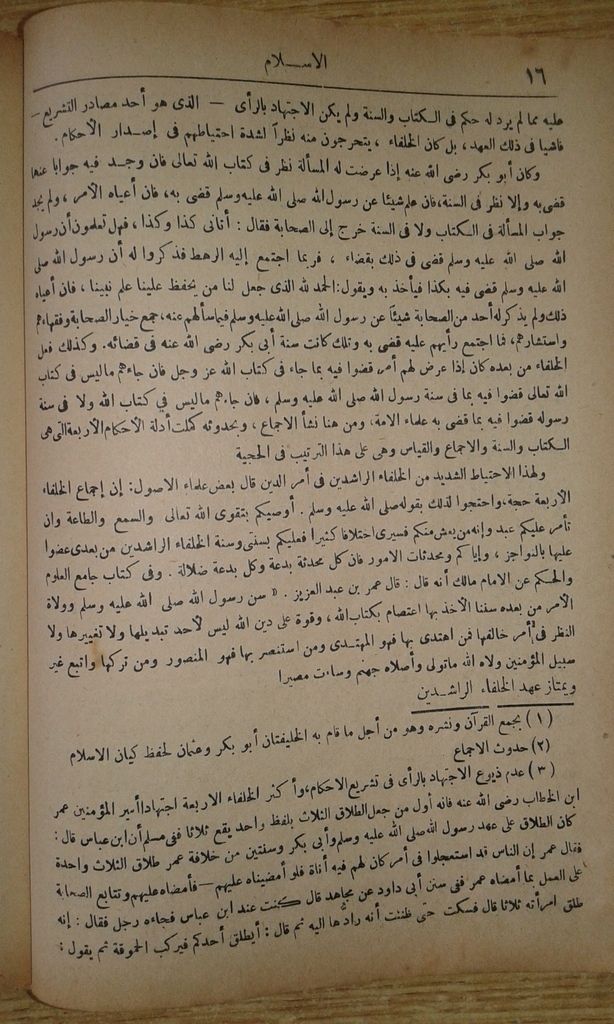 ١٦
الاســلام
عليه مما لم يرد له حكم فى الكتاب والسنة ولم يكن الاجتهاد بالرأى — الذى هو أحد مصادر التشريع —
فاشيا فى ذلك العهد، بل كان الخلفاء ، يتحرجون منه نظراً لشدة احتياطهم فى إصدار الأحكام .
وكان أبو بكر رضى الله عنه إذا عرضت له المسألة نظر فى كتاب الله تعالى فان وجد فيه جوابا عنها
قضى به وإلا نظر فى السنة، فان علم شيئا عن رسول الله صلى الله عليه وسلم قضى به، فان أعياه الأمر ، ولم يجد
جواب المسألة فى الكتاب ولا فى السنة خرج إلى الصحابة فقال : أتانى كذا وكذا ، فهل تعلمون أن رسول
الله صلى الله عليه وسلم قضى فى ذلك بقضاء ، فربما اجتمع إليه الرهط فذكروا له أن رسول الله صلى
الله عليه وسلم قضى فيه بكذا فيأخذ به ويقول: الحمد لله الذى جعل لنا من يحفظ علينا علم نبينا ، فان أعياه
ذلك ولم يذكر له أحد من الصحابة شيئا عن رسول الله صلى الله عليه وسلم فيما سألهم عنه، جمع خيار الصحابة وفقهاءهم
واستشارهم، فما اجتمع رأيهم عليه قضى به وتلك كانت سنة أبى بكر رضى الله عنه فى قضائه. وكذلك فعل
الخلفاء من بعده كان إذا عرض لهم أمر قضوا فيه بما جاء فى كتاب الله عز وجل فان جاءهم ما ليس فى كتاب
الله تعالى قضوا فيه بما فى سنة رسول الله صلى الله عليه وسلم ، فان جاءهم ما ليس فى كتاب الله ولا فى سنة
رسوله قضوا فيه بما قضى به علماء الامة، ومن هنا نشأ الاجماع ، وبحدوثه كملت أدلة الأحكام الأربعة التى هى
الكتاب والسنة والاجماع والقياس وهى على هذا الترتيب فى الحجية
ولهذا الاحتياط الشديد من الخلفاء الراشدين فى أمر الدين قال بعض علماء الاصول: إن إجماع الخلفاء
الأربعة حجة، واحتجوا لذلك بقوله صلى الله عليه وسلم . أوصيكم بتقوى الله تعالى والسمع والطاعة وان
تأمر عليكم عبد وإنه من يعش منكم فسيرى اختلافا كثيرا فعليكم بسنتى وسنة الخلفاء الراشدين من بعدى عضوا
عليها بالنواجز ، وإياكم ومحدثات الامور فان كل محدثة بدعة وكل بدعة ضلالة . وفى كتاب جامع العلوم
والحكم عن الامام مالك أنه قال : قال عمر بن عبد العزيز . « سن رسول الله صلى الله عليه وسلم وولاة
الأمر من بعده سننا الأخذ بها اعتصام بكتاب الله ، وقوة على دين الله ليس لأحد تبديلها ولا تغييرها ولا
النظر فى أمر خالفها فمن اهتدى بها فهو المهتدى ومن استنصر بها فهو المنصور ومن تركها واتبع غير
سبيل المؤمنين ولاه الله ماتولى وأصلاه جهنم وساءت مصيرا
ويمتاز عهد الخلفاء الراشدين
(١) بجمع القرآن ونشره وهو من أجل ما قام به الخليفتان أبو بكر وعثمان لحفظ كيان الاسلام
(٢) حدوث الاجماع
(٣) عدم ذيوع الاجتهاد بالرأى فى تشريع الاحكام، وأكثر الخلفاء الاربعة اجتهادا أمير المؤمنين عمر
ابن الخطاب رضى الله عنه فانه أول من جعل الطلاق الثلاث بلفظ واحد يقع ثلاثا ففى مسلم أن ابن عباس قال :
كان الطلاق على عهد رسول الله صلى الله عليه وسلم وأبى بكر وسنتين من خلافة عمر طلاق الثلاث واحدة
فقال عمر إن الناس قد استعجلوا فى أمر كان لهم فيه أناة فلو أمضيناه عليهم — فأمضاه عليهم وتتابع الصحابة
على العمل بما أمضاه عمر ففى سنن أبى داود عن مجاهد قال كنت عند ابن عباس فجاءه رجل فقال : إنه
طلق امرأته ثلاثا قال فسكت حتى ظننت أنه رادها اليه ثم قال : أيطلق أحدكم فيركب الحموقة ثم يقول :